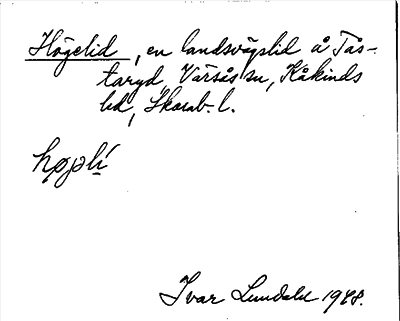 Högelid, en landsvägslid å Tås-
taryd, Varsås sn, Kåkinds
hd, Skarab. l.
Ivar Lundahl 1928.